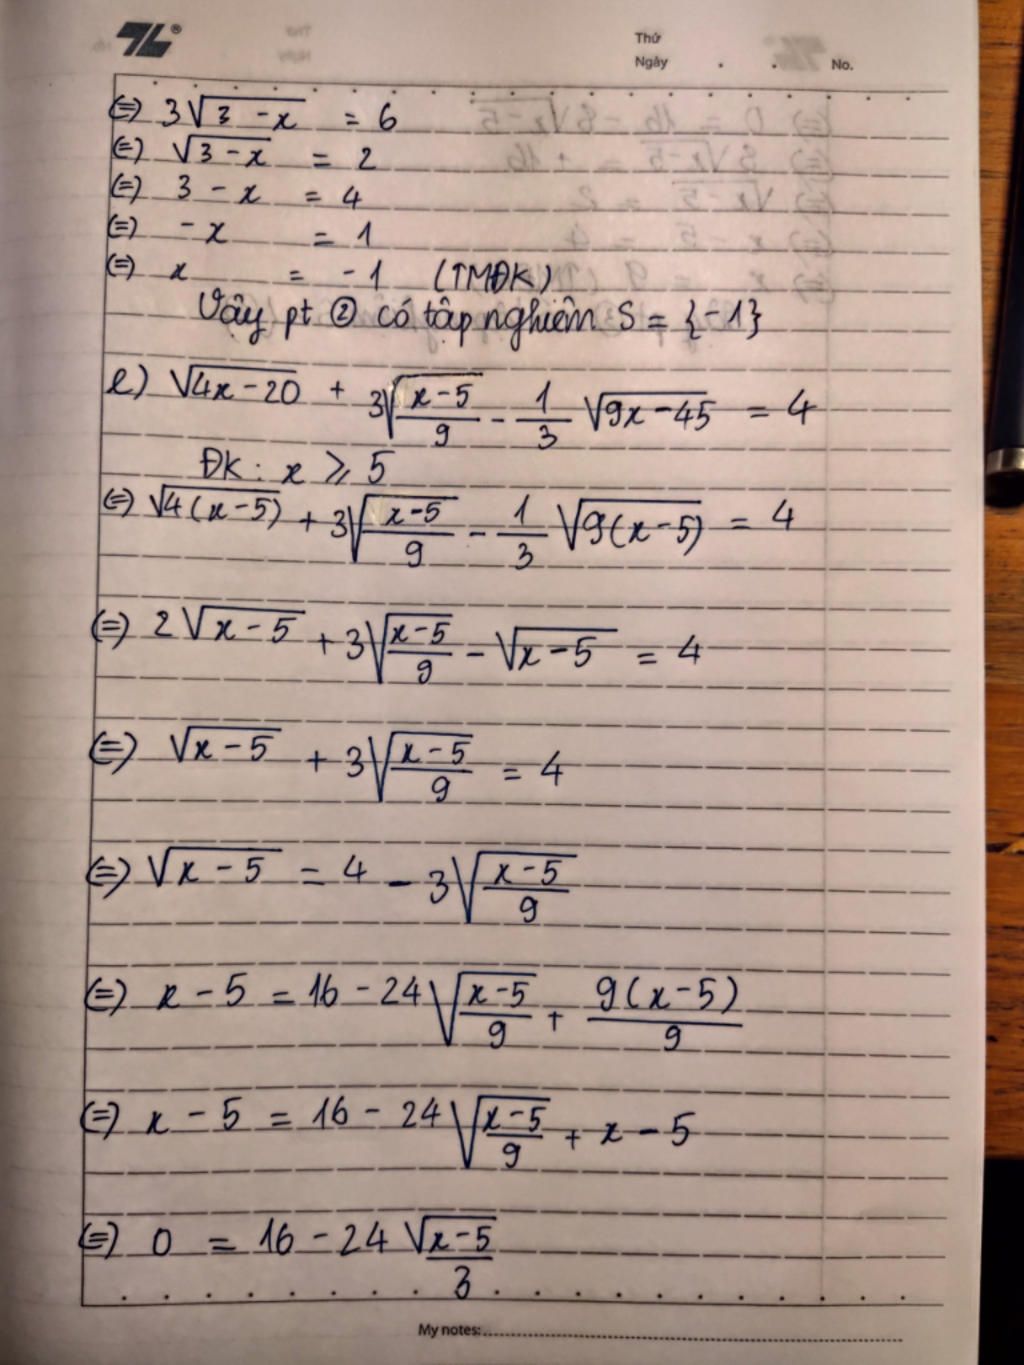 TL®
Thứ
Ngày . . No.
(=) 3√(3 - x) = 6
(=) √(3 - x) = 2
(=) 3 - x = 4
(=) - x = 1
(=) x = - 1 (TMĐK)
Vậy pt ② có tập nghiệm S = {-1}
e) √(4x - 20) + 3√((x - 5)/9) - 1/3 √(9x - 45) = 4
ĐK : x ⩾ 5
(=) √(4(x - 5)) + 3√((x - 5)/9) - 1/3 √(9(x - 5)) = 4
(=) 2√(x - 5) + 3√((x - 5)/9) - √(x - 5) = 4
(=) √(x - 5) + 3√((x - 5)/9) = 4
(=) √(x - 5) = 4 - 3√((x - 5)/9)
(=) x - 5 = 16 - 24√((x - 5)/9) + 9(x - 5)/9
(=) x - 5 = 16 - 24√((x - 5)/9) + x - 5
(=) 0 = 16 - 24 √(x - 5)/3
My notes: